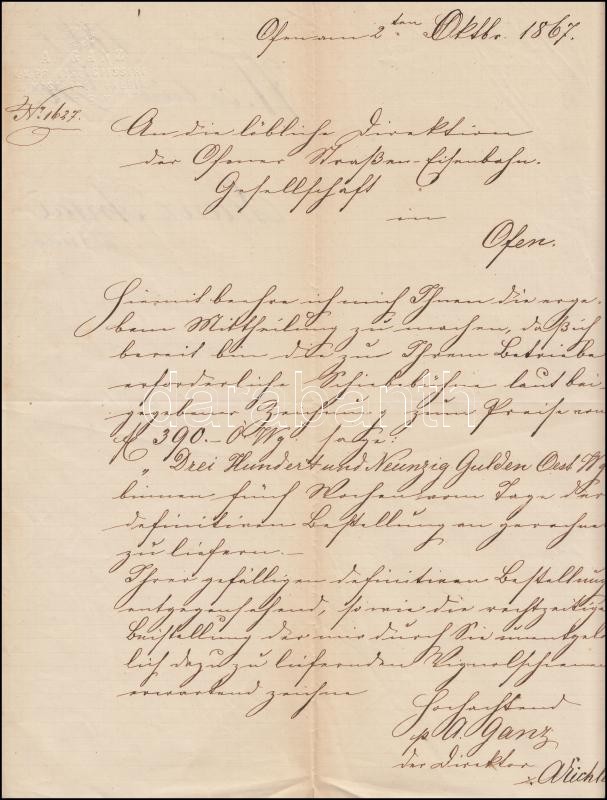 Ofen am 2ten Oktbr. 1867.
A. GANZ
No 1627.
An die löbliche Direktion
der Ofner Straßen-Eisenbahn-
Gesellschaft
in
Ofen.
Hiermit beehre ich mich Ihnen die erge-
bene Mittheilung zu machen, daß ich
bereit bin die zu Ihrem Betriebe
erforderliche Schiebebühne laut bei
gegebener Zeichnung zum Preise von
fl 390.- ÖWg sage:
„ Drei Hundert und Neunzig Gulden Oest. Wg
binnen fünf Wochen vom Tage der
definitiven Bestellung an gerechne
zu liefern.—
Ihrer gefälligen definitiven Bestellung
entgegensehend, so wie die rechtzeitige
Beistellung der mir durch Sie unentgel
lich dazu zu liefernden Vignolschienen
erwartend zeichne
Hochachtend
p A. Ganz
der Direktor
AEichle
darabanth